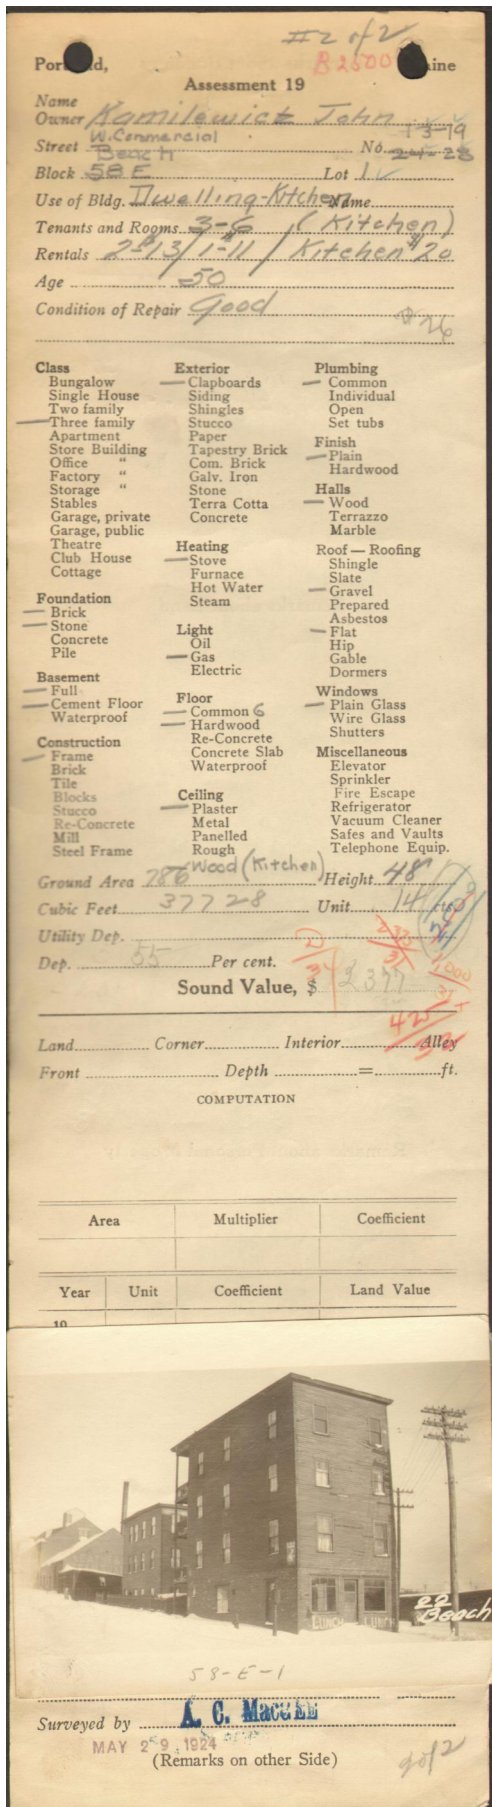 #2 of 2
Portland, Maine
B 2500
Assessment 19
Name
Owner Kamilewicz John
W. Commercial 13-19
Street Beach No. 21-23
Block 58 E Lot 1
Use of Bldg. Dwelling-Kitchen Name
Tenants and Rooms 3-6 (Kitchen)
Rentals 2-13/1-$11 / Kitchen $20
Age 50
Condition of Repair Good
$26
Class
Bungalow
Single House
Two family
Three family
Apartment
Store Building
Office "
Factory "
Storage "
Stables
Garage, private
Garage, public
Theatre
Club House
Cottage
Foundation
Brick
Stone
Concrete
Pile
Basement
Full
Cement Floor
Waterproof
Construction
Frame
Brick
Tile
Blocks
Stucco
Re-Concrete
Mill
Steel Frame
Exterior
Clapboards
Siding
Shingles
Stucco
Paper
Tapestry Brick
Com. Brick
Galv. Iron
Stone
Terra Cotta
Concrete
Heating
Stove
Furnace
Hot Water
Steam
Light
Oil
Gas
Electric
Floor
Common 6
Hardwood
Re-Concrete
Concrete Slab
Waterproof
Ceiling
Plaster
Metal
Panelled
Rough
Wood (Kitchen)
Plumbing
Common
Individual
Open
Set tubs
Finish
Plain
Hardwood
Halls
Wood
Terrazzo
Marble
Roof — Roofing
Shingle
Slate
Gravel
Prepared
Asbestos
Flat
Hip
Gable
Dormers
Windows
Plain Glass
Wire Glass
Shutters
Miscellaneous
Elevator
Sprinkler
Fire Escape
Refrigerator
Vacuum Cleaner
Safes and Vaults
Telephone Equip.
Ground Area 786 Height 48
Cubic Feet 37728 Unit 14
Utility Dep.
Dep. 55 Per cent.
Sound Value, $ 2377
Land Corner Interior Alley
Front Depth = ft.
COMPUTATION
Area Multiplier Coefficient
Year Unit Coefficient Land Value
19
LUNCH LUNCH
22
Beach
58-E-1
Surveyed by A. C. MacGEE
MAY 29 1924
(Remarks on other Side)
2 of 2